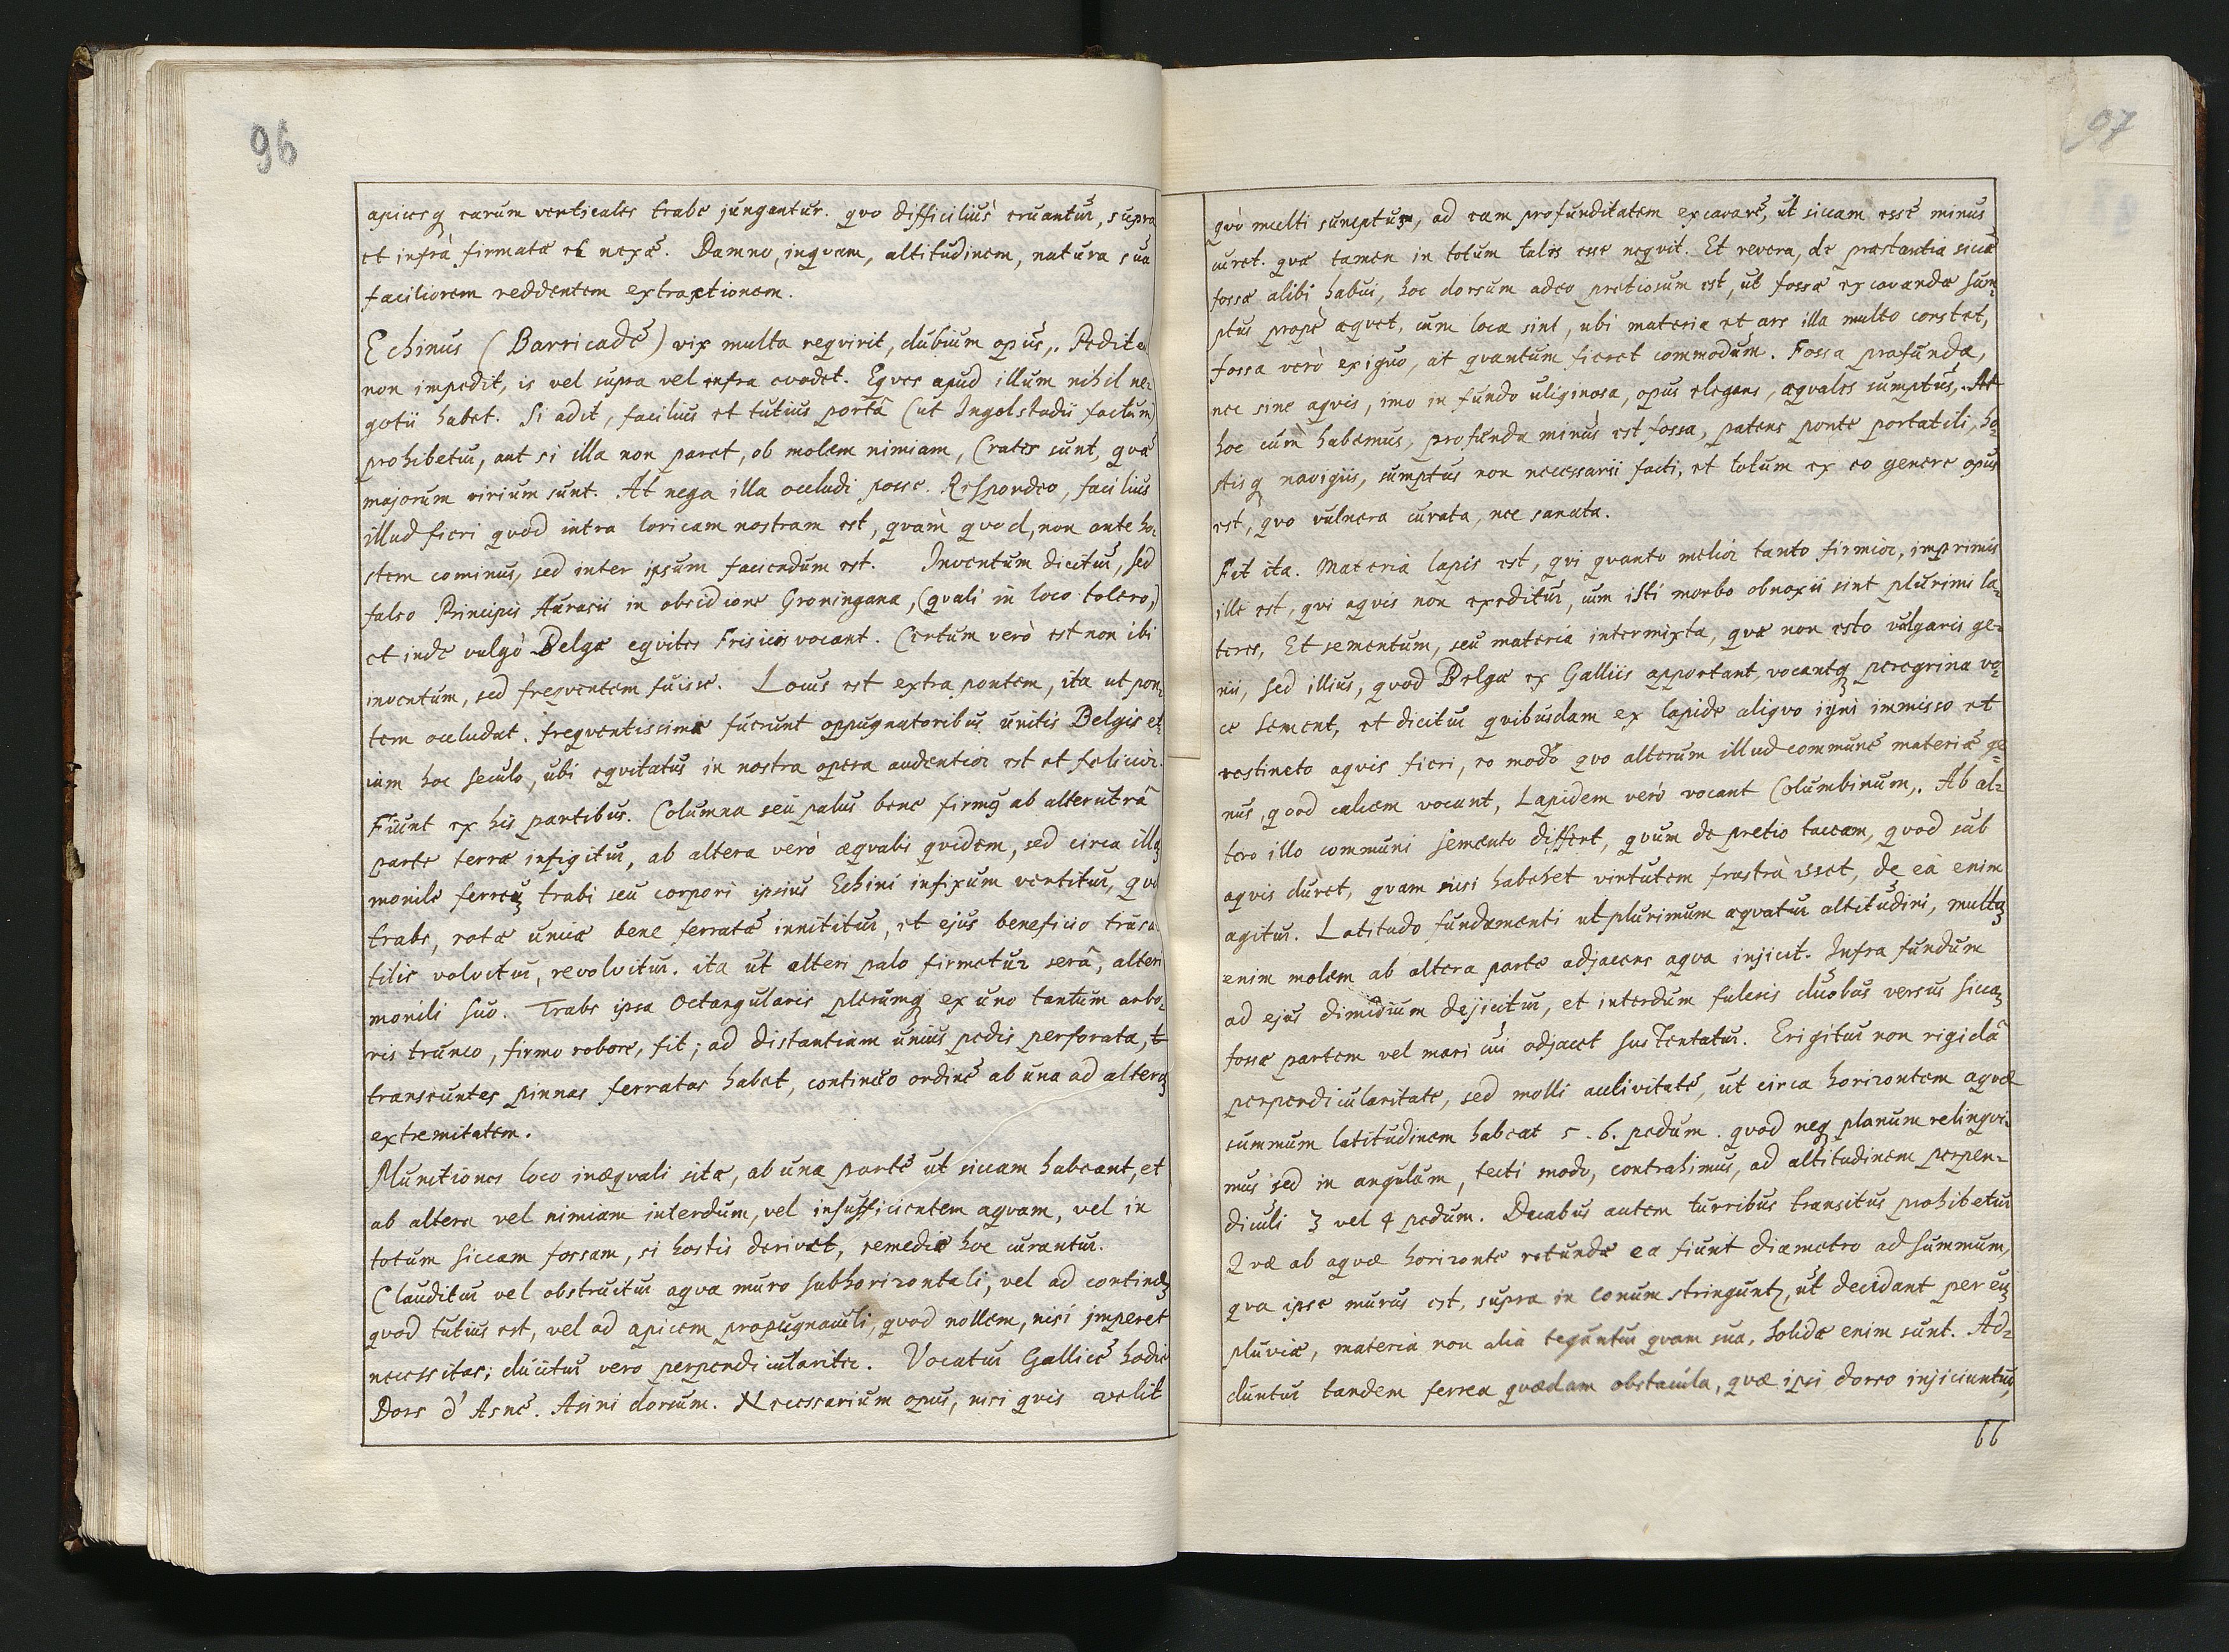 96
apicesq earum verticales trabe jungantur. qvo difficiliùs eruantur, supra
et infrà firmatæ et nexæ. Damno, inqvam, altitudinem, natura sua
faciliorem reddentem extractionem.
Echinus (Barricade) vix multa reqvirit, dubium opus,. Pedite
non impedit, is vel supra vel infra evadet. Eqves apud illum nihil ne-
gotii habet. Si adit, facilius et tutius portâ (ut Ingolstadii factum)
prohibetur, aut si illa non paret, ob molem nimiam, Crates sunt, qvæ
majorum virium sunt. At nega illa occludi posse. Respondeo, facilius
illud fieri qvod intra loricam nostram est, qvàm qvod, non ante ho-
stem cominus, sed inter ipsum faciendum est. Inventum dicitur, sed
falso Principis Aurasii in obsidione Groningana, (qvali in loco tolero,)
et inde vulgò Belgæ eqvites Frisiios vocant. Certum verò est non ibi
inventum, sed freqventem fuisse. Locus est extra pontem, ita ut pon-
tem occludat. freqventissimæ fuerunt oppugnatoribus unitis Belgis et-
iam hoc seculo, ubi eqvitatus in nostra opera audentior est et felicior.
Fiunt ex his partibus. Columna seu palus bene firmq ab alterutrâ
parte terræ infigitur, ab altera verò æqvabi qvidem, sed circa illq
monile ferreu trabi seu corpori ipsius Echini infixum vertitur, qvo
trabs, rotæ unicæ bene ferratæ innititur, et ejus beneficio trusa-
tilis volvitur, revolvitur. ita ut alteri palo firmetur serâ, alteri
monili suo. Trabs ipsa Octangularis plerumq ex uno tantum arbo-
ris trunco, firmo robore, fit; ad distantiam unius pedis perforata, t
transeuntes pinnas ferratas habet, continuo ordine ab una ad alterq
extremitatem.
Munitiones loco inæqvali sitæ, ab una parte ut siccam habeant, et
ab altera vel nimiam interdum, vel insufficientem aqvam, vel in
totum siccam fossam, si hostis derivet, remedio hoc curantur.
Clauditur vel obstruitur aqva muro subhorizontali, vel ad continez
qvod tutius est, vel ad apicem propugnaculi, qvod nollem, nisi imperet
necessitas; ducitur vero perpendiculariter. Vocatur Gallicè hodie
Dors d'Asne. Asini dorsum. Necessarium opus, nisi qvis velit
97
qvò multi sumptuz, ad eam profunditatem excavare, ut siccam esse minus
curet. qvæ tamen in totum talis esse neqvit. Et revera, de præstantia siccæ
fossæ alibi habui, hoc dorsum adeo pretiosum est, ut fossæ excavandæ sum-
ptus propè æqvet, cum loca sint, ubi materia et ars illa multo constet,
fossa verò exiguo, at qvantum fieret commodum. Fossa profunda,
nec sine aqvis, imo in fundo uliginosa, opus elegans, æqvales sumptus,. At
hoc cum habemus, profunda minùs est fossa, patens ponte portatili, ho-
stisq navigiis, sumptus non necessarii facti, et totum ex eo genere opus
est, qvo vulnera curata, nec sanata.
Fit ita. Materia lapis est, qvi qvanto melior tanto firmior, imprimis
ille est, qvi aqvis non exeditur, cum isti morbo obnoxii sint plurimi la-
teres. Et sementum, seu materia intermixta, qvæ non esto vulgaris ge-
nii, sed illius, qvod Belgæ ex Galliis apportant, vocantq peregrina vo-
ce sement, et dicitur qvibusdam ex lapide aliqvo igni immisso et
restincto aqvis fieri, eo modo qvo alterum illud commune materiæ ge-
nus, qvod calcem vocant, Lapidem verò vocant Columbinum,. Ab al-
tero illo communi semento differt, qvum de pretio taceam, qvod sub
aqvis duret, qvam nisi haberet virtutem frustrà esset, de eà enim
agitur. Latitudo fundamenti ut plurimum æqvatur altitudini, multq
enim molem ab altera parte adjacens aqva injicit. Infra fundum
ad ejus dimidium dejicitur, et interdum fulcris duobus versus siccaz
fossæ partem vel mari cui adjacet sustentatur. Erigitur non rigidâ
perpendicularitate, sed molli acclivitate, ut circa horizontem aqvæ
summum latitudinem habeat 5. 6. pedum. qvod neq planum relinqvi-
mus sed in angulum, tecti modo, contrahimus, ad altitudinem perpen-
diculi 3 vel 4 pedum. Duabus autem turribus transitus prohibetur
Qvæ ab aqvæ horizonte rotundæ ea fiunt diametro ad summum,
qva ipse murus est, supra in conum stringuntz, ut decidant per euz
pluviæ, materia non alia teguntur qvam sua, solidæ enim sunt. Ad-
duntur tandem ferrea qvædam obstacula, qvæ ipsi dorso injiciuntur,
66